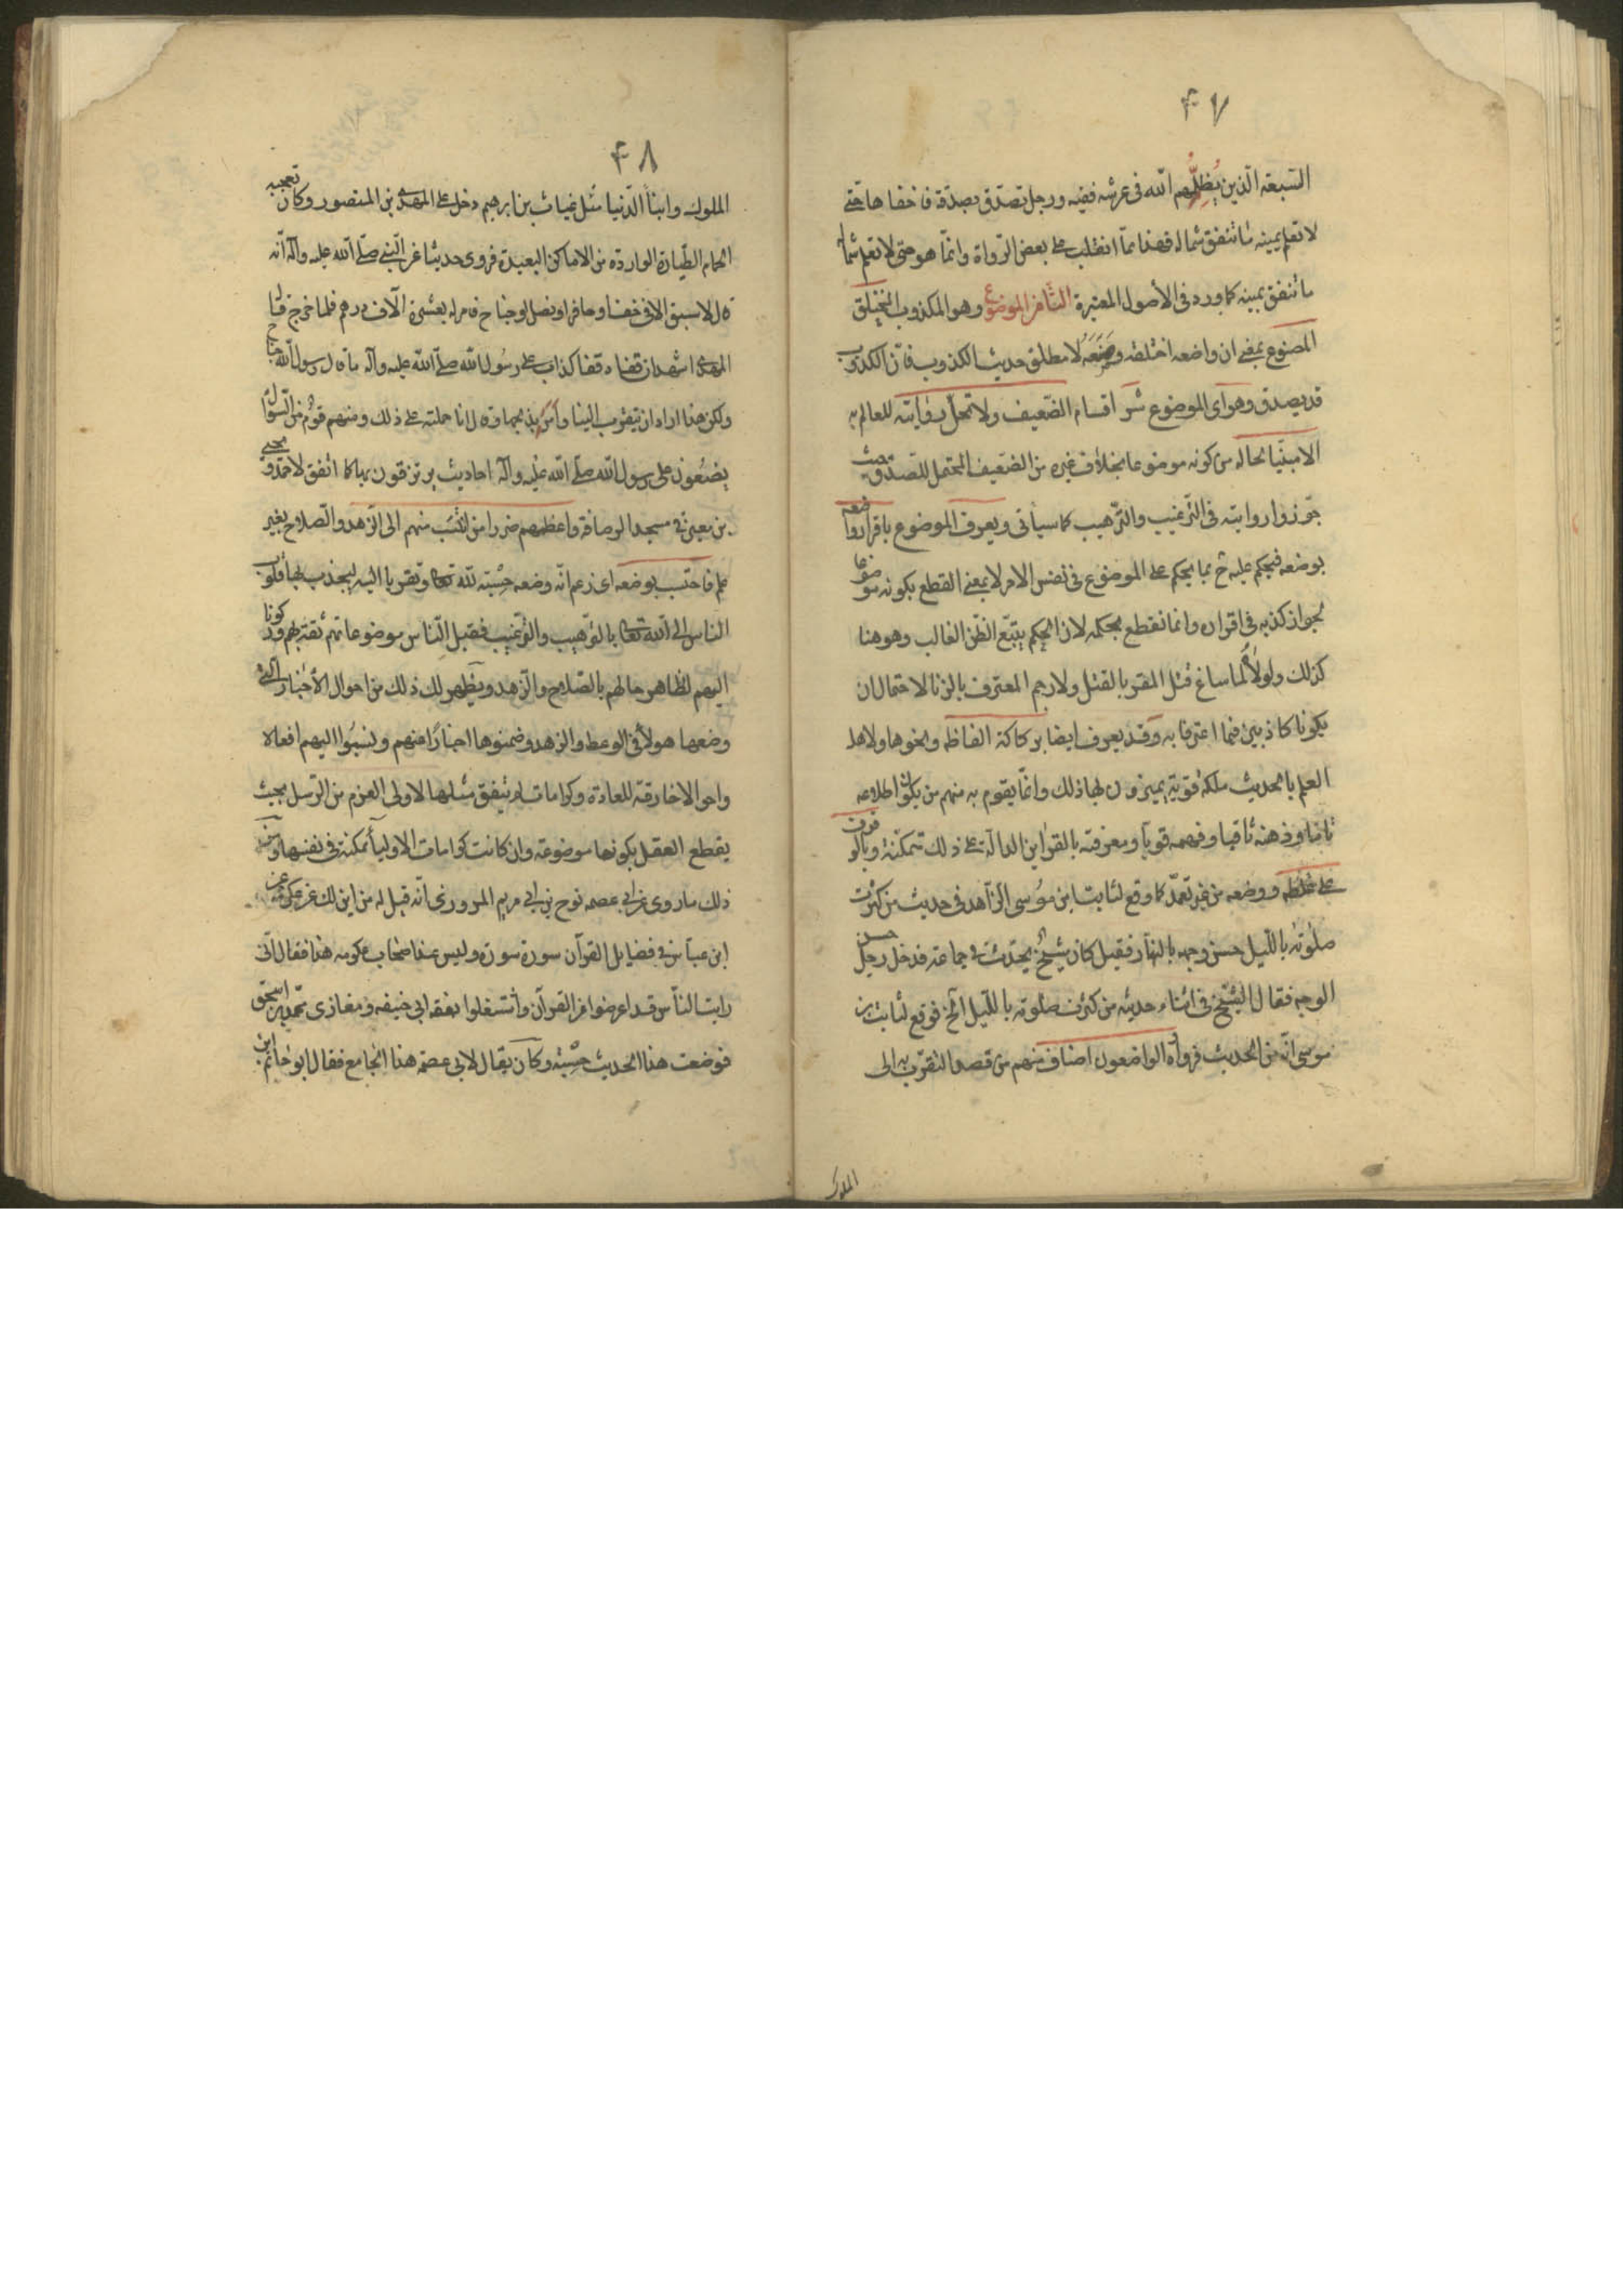 ۴۷
السّبعة الّذين يُظِلُّهم الله فى عرشه ففيه ورجل تصدّق بصدقة فاخفاها حتّى
لا تعلم يمينه ما تنفق شماله فهذا ممّا انقلب على بعض الرّواة وانّما هو حتى لا تعلم شماله
ما تنفق يمينه كما ورد فى الأصول المعتبرة الثّامن الموضوع وهو المكذوب المختلق
المصنوع بمعنى ان واضعه اختلقه وصَنَعَهُ لا مطلق حديث الكذوب فانّ الكذوب
قد يصدق وهو اى الموضوع شرّ اقسام الضّعيف ولا تحلّ روايته للعالم به
الا مبيّنا لحاله من كونه موضوعا بخلاف غيره من الضّعيف المحتمل للصّدق حيث
جوّزوا روايته فى التّرغيب والتّرهيب كما سيأتى ويعرف الموضوع باقرار واضعه
بوضعه فيحكم عليه ح بما يحكم على الموضوع فى نفس الامر لا بمعنى القطع بكونه موضوعا
لجواز كذبه فى اقراره وانما نقطع بحكمه لان الحكم يتبّع الظّن الغالب وهو هنا
كذلك ولولاه لما ساغ قتل المقر بالقتل ولا رجم المعترف بالزنا لاحتمال ان
يكونا كاذبين فيما اعترفا به وقد يعرف ايضا بركاكة الفاظه ونحوها ولاهل
العلم بالحديث ملكة قويّة يميزون بها ذلك وانّما يقوم به منهم من يكون اطلاعه
تامّا وذهنه ثاقبا وفهمه قويّا ومعرفته بالقراين الدالّة على ذلك متمكّنة وبالوقوف
على غلطه ووضعه من غير تعمّد كما وقع لثابت ابن مُوسى الزّاهد فى حديث من كثرت
صلوته بالّليل حسن وجهه بالنهار فقيل كان شيخٌ يحدّث فى جماعة فدخل رجل حسن
الوجه فقال الشيّخ فى اثناء حديثه من كثرت صلوته بالّليل الخ فوقع لثابت بن
موسى انّه من الحديث فرواه الواضعون اصناف منهم من قصد التّقرّب به الى
الملوك
۴۸
الملوك وابناء الدّنيا مثل غياث بن ابرهيم دخل على المهدى بن المنصور وكان تعجبه
الحمام الطّيارة الواردة من الاماكن البعيدة فروى حديثا عن النّبى صلّى الله عليه وآله انّه
قال لا سبق الا فى خف او حافر او نصل او جناح فامر له بعشرة آلاف درهم فلما خرج قال
المهدى اشهد ان قفاه قفا كذاب على رسُول الله صلّى الله عليه وآله ما قال رسول الله جناح
ولكن هذا اراد ان يتقرب الينا وأمر بذبحها وقال انا حملته على ذلك ومنهم قومٌ من السّؤال
يضعُون على رسول الله صلّى الله عليه وآله احاديث يرتزقون بها كما اتفق لاحمد ويحيى
بن معين فى مسجد الرصافة واعظمهم ضررا من انتسَب منهم الى الزّهد والصّلاح بغير
علم فاحتسب بوضعه اى زعم انّه وضعه حِسْبة لله تعالى وتقربا اليه ليجذب بها قلوب
الناس الى الله تعالى بالترّهيب والترّغيب فقبل النّاس موضوعاتهم ثقة بهم وركونا
اليهم لظاهر حالهم بالصّلاح والزّهد ويظهر لك ذلك من احوال الأخبار الّتى
وضعها هولاء فى الوعظ والزهد وضمنوها اخبارًا عنهم ونسبُوا اليهم افعالا
واحوالا خارقة للعادة وكرامات لم يتفق مثلها لاولى العزم من الرّسل بحيث
يقطع العقل بكونها موضوعة وان كانت كرامات الاولياء ممكنة فى نفسها ومن
ذلك ما روى عن ابى عصمه نوح بن ابى مريم المروزى انّه قيل له من اين لك عن عكرمة عن
ابن عبّاس فى فضايل القرآن سورة سورة وليس عند اصحاب عكرمه هذا فقال انّى
رايت النّاس قد اعرضوا عن القرآن واشتغلوا بفقه ابى حنيفه ومغازى محمّد بن اسحٰق
فوضعت هذا الحديث حِسْبة وكان يقال لابى عصمه هذا الجامع فقال ابو حٰاتم بن